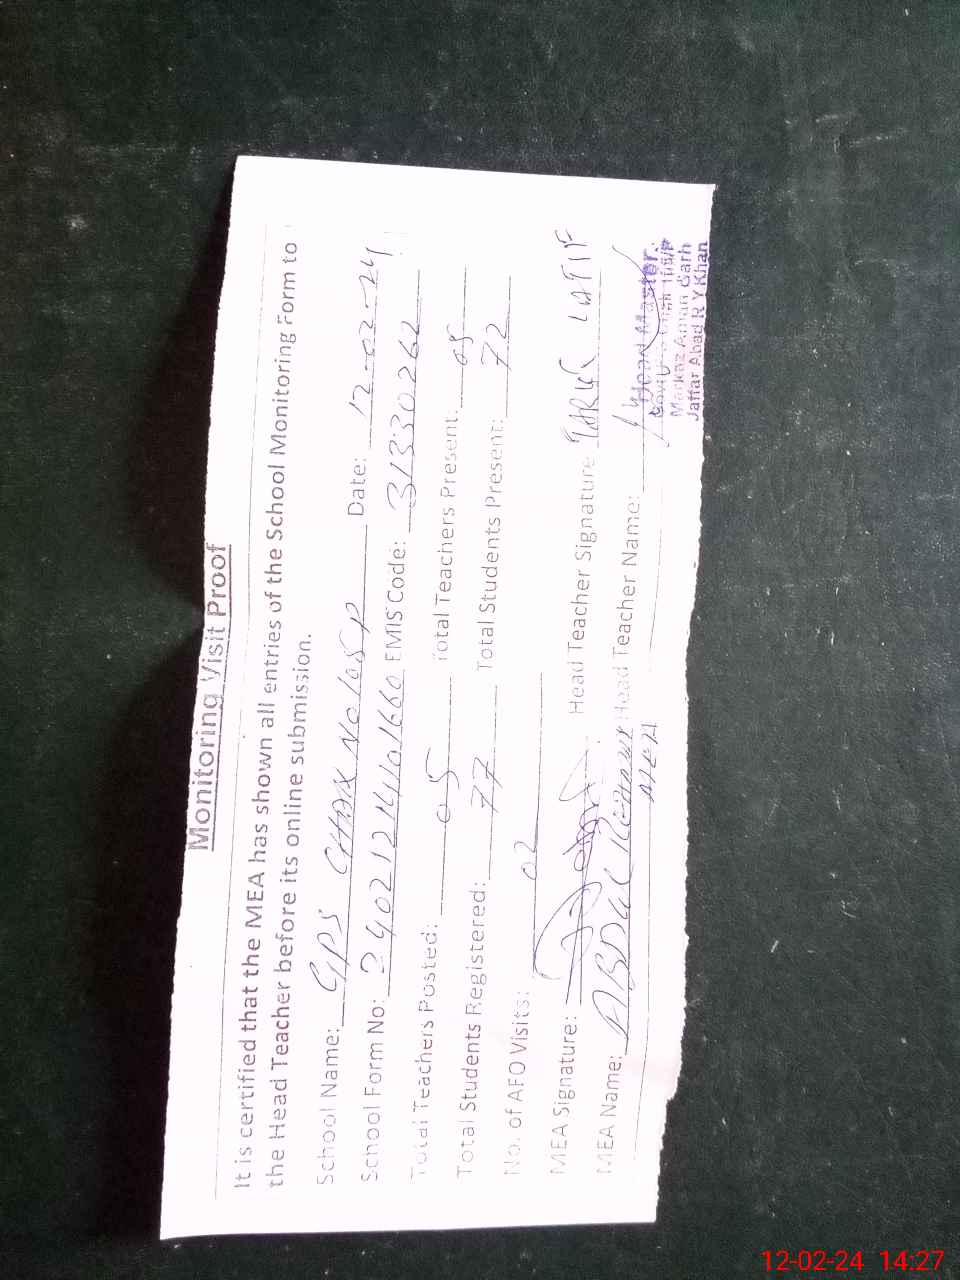 Monitoring Visit Proof
It is certified that the MEA has shown all entries of the School Monitoring Form to
the Head Teacher before its online submission.
School Name: GPS CHAK No 105P Date: 12-02-24
School Form No: 3402121411401660 EMIS Code: 31330262
Total Teachers Posted: 05 Total Teachers Present: 05
Total Students Registered: 77 Total Students Present: 72
No. of AFO Visits: 02
MEA Signature: Head Teacher Signature TARIQ LATIF
MEA Name: ABDUL Head Teacher Name:
MEA
Head Master.
Markaz Aman Garh
Jaffar Abad R Y Khan
12-02-24 14:27